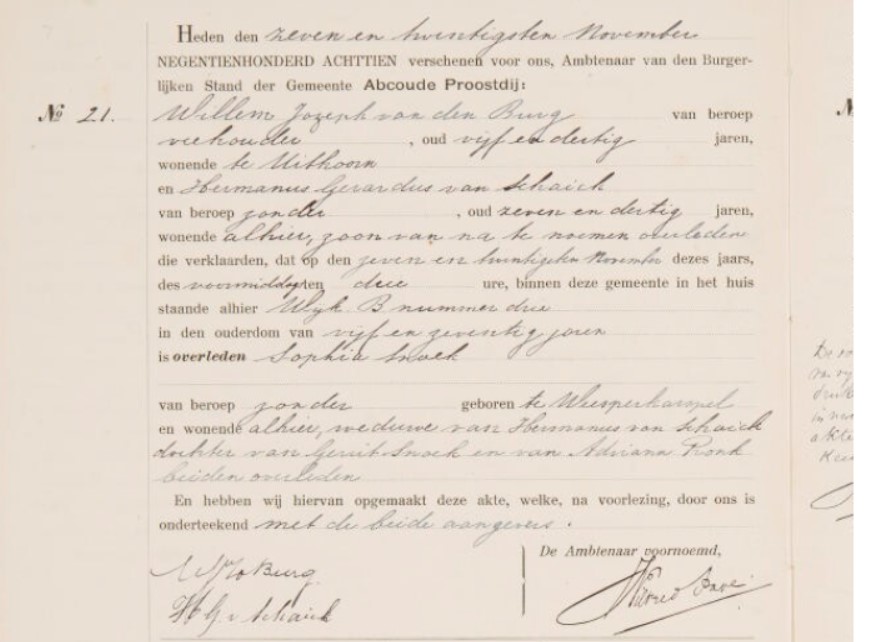 Heden den zeven en twintigsten November
NEGENTIENHONDERD ACHTTIEN verschenen voor ons, Ambtenaar van den Burger-
lijken Stand der Gemeente Abcoude Proostdij:
№ 21. Willem Jozeph van den Burg van beroep
veehouder , oud vijf en dertig jaren,
wonende te Uithoorn
en Hermanus Gerardus van Schaick
van beroep zonder , oud zeven en dertig jaren,
wonende alhier, zoon van na te noemen overledene
die verklaarden, dat op den zeven en twintigsten November dezes jaars,
des voormiddags ten drie ure, binnen deze gemeente in het huis
staande alhier Wijk B nummer drie
in den ouderdom van vijf en zeventig jaren
is overleden Sophia Snoek
van beroep zonder geboren te Weesperkarspel
en wonende alhier, weduwe van Hermanus van Schaick
dochter van Gerrit Snoek en van Adriana Pronk
beiden overleden
En hebben wij hiervan opgemaakt deze akte, welke, na voorlezing, door ons is
onderteekend met de beide aangevers.
De Ambtenaar voornoemd,
Burg
H G v Schaick